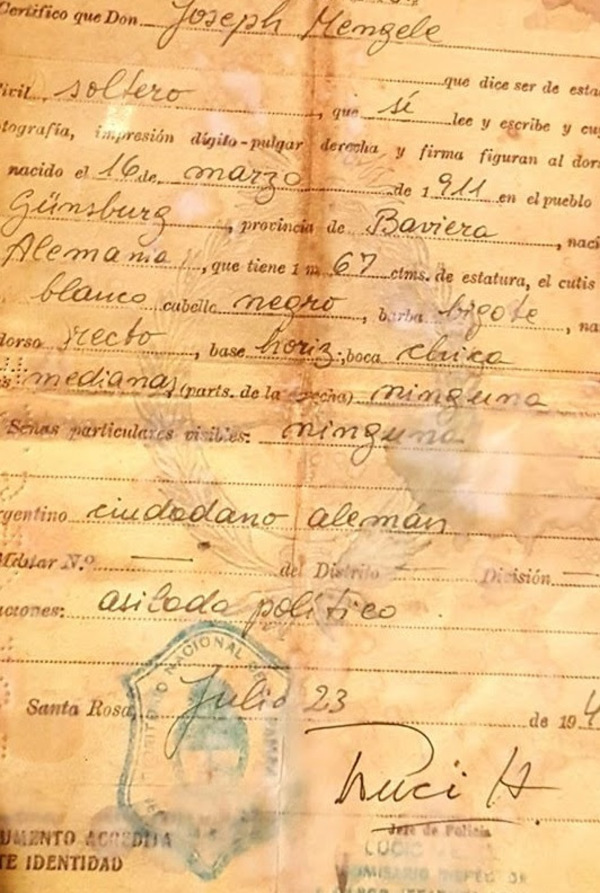 Certifico que Don Joseph Mengele
que dice ser de esta
civil soltero, que sí lee y escribe y cuy
otografía, impresión dígito-pulgar derecha y firma figuran al dors
nacido el 16 de marzo de 1911 en el pueblo
Günsburg, provincia de Baviera, naci
Alemania, que tiene 1 m 67 ctms. de estatura, el cutis
blanco cabello negro, barba bigote, na
dorso recto, base horiz., boca chica
s medianas (parts. de la) ninguna
Señas particulares visibles: ninguna
rgentino ciudadano alemán
Militar N.º — del Distrito — División —
aciones: asilado político
TERRITORIO NACIONAL DE
Santa Rosa, Julio 23 de 194
Jefe de Policia
LUCIO
UMENTO ACREDITA
COMISARIO INSPEC
TE IDENTIDAD